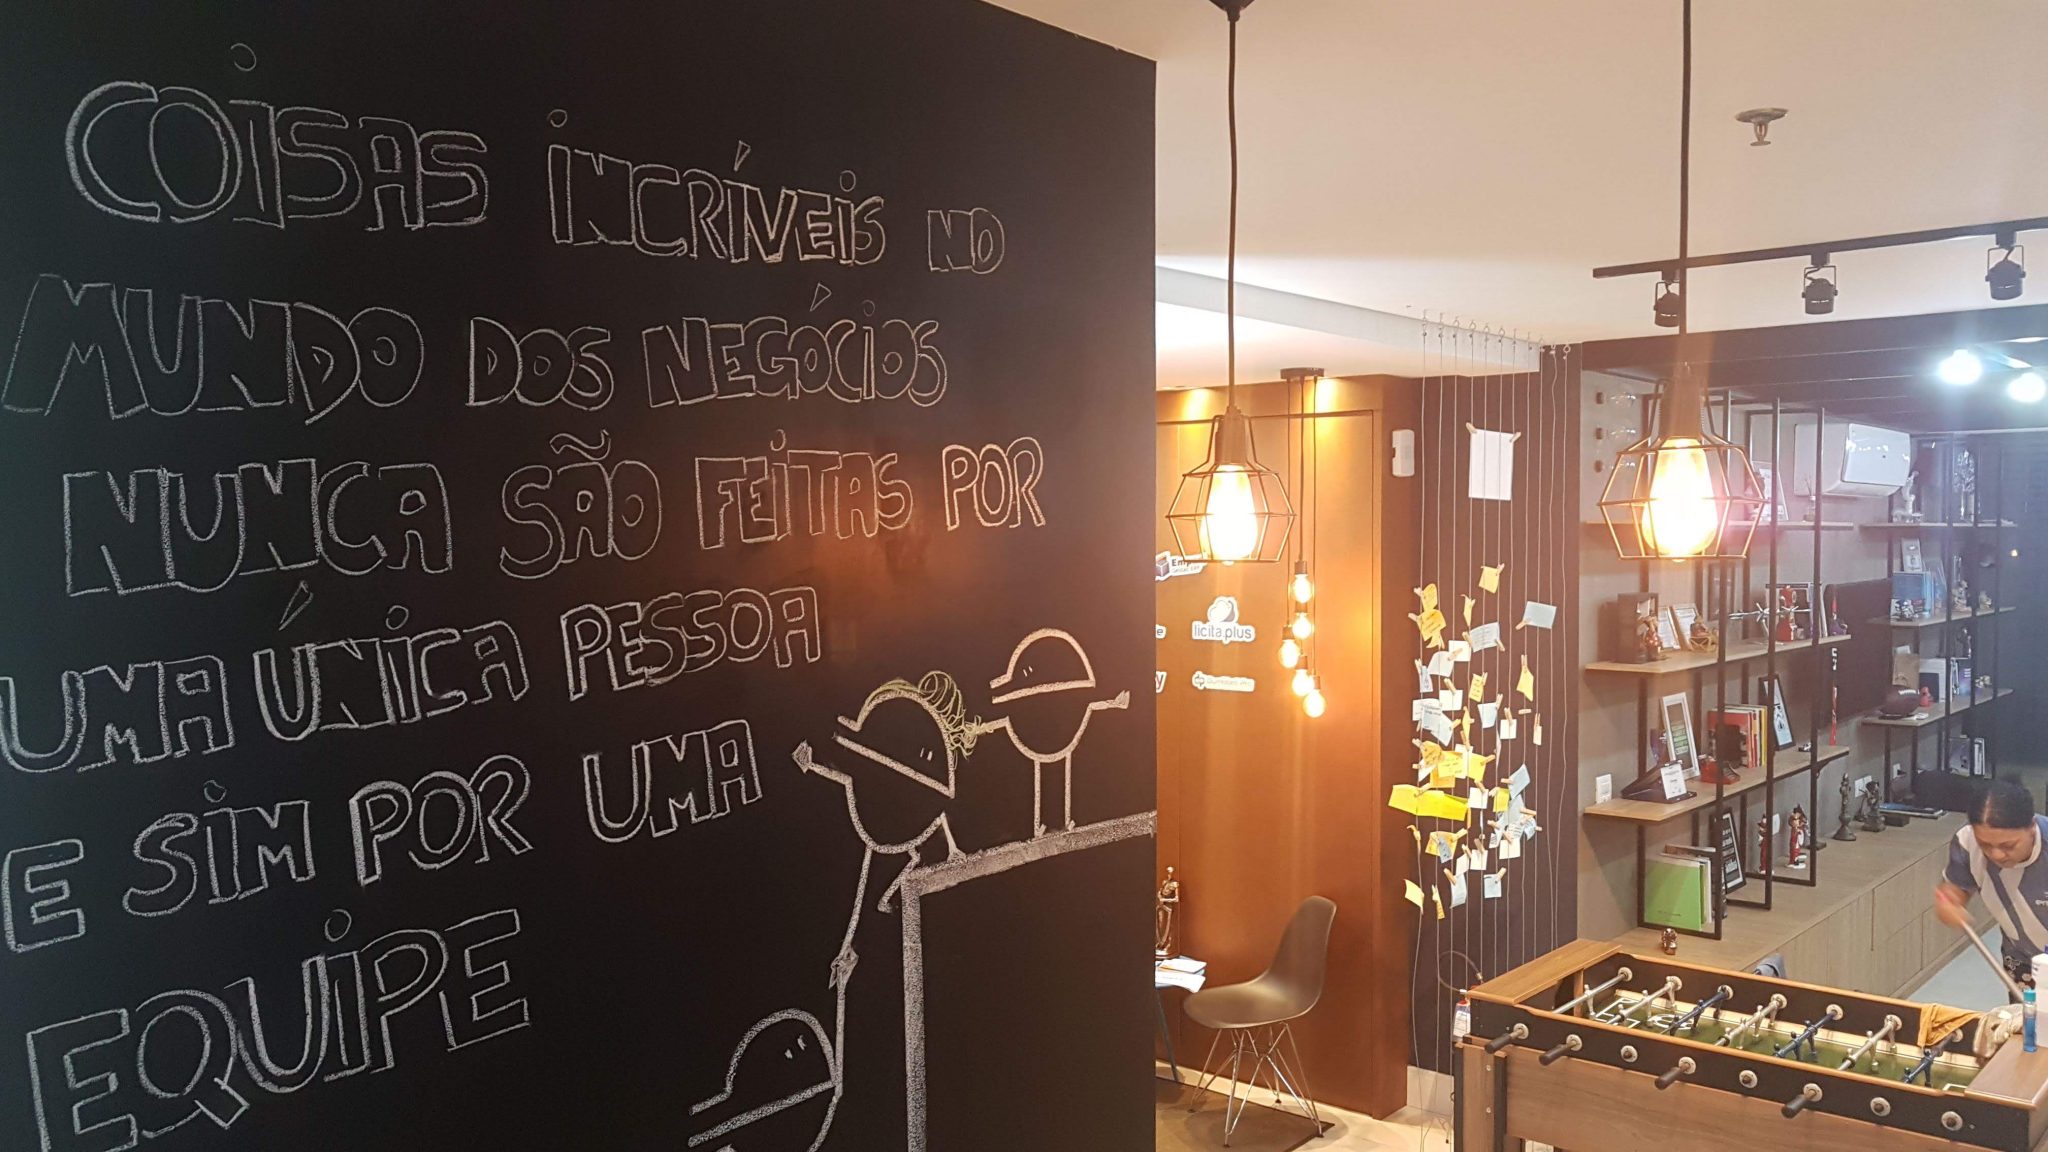 COISAS INCRÍVEIS NO
MUNDO DOS NEGÓCIOS
NUNCA SÃO FEITAS POR
UMA ÚNICA PESSOA
E SIM POR UMA
EQUIPE
licita.plus